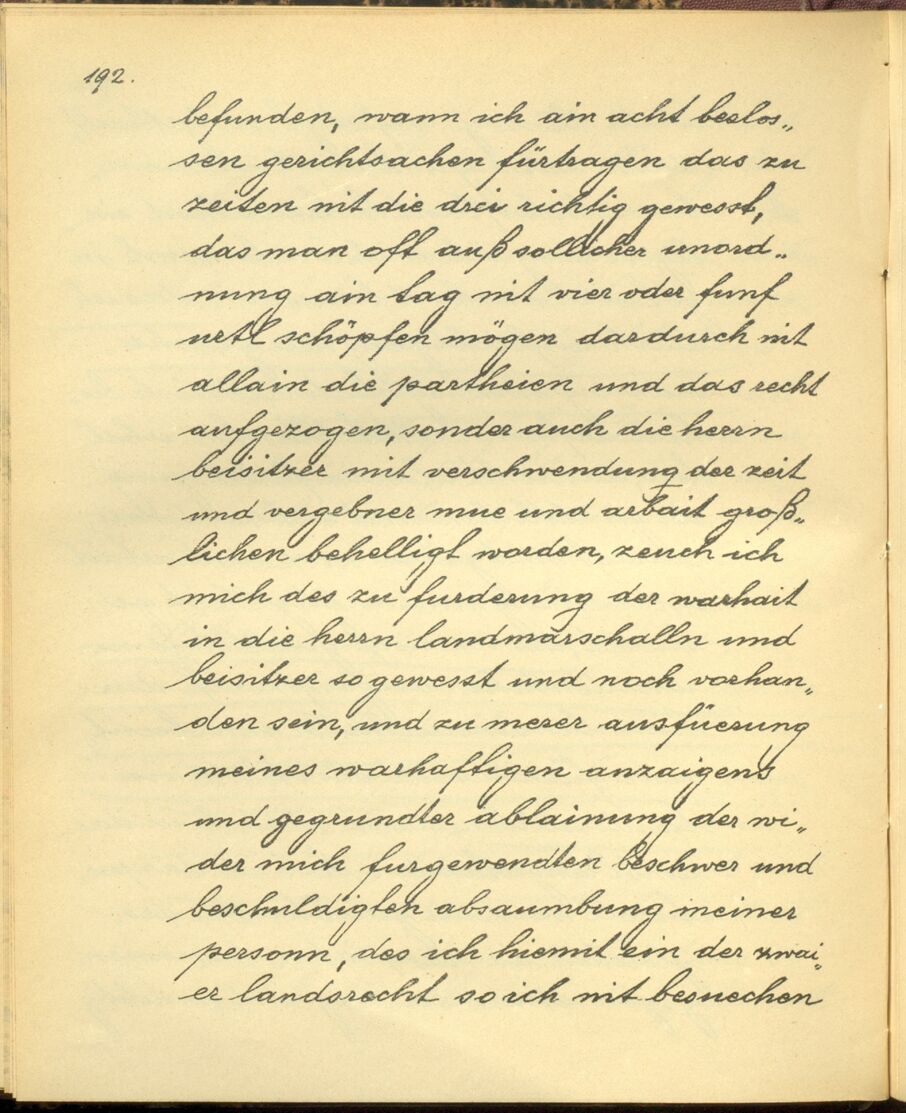 192.
befunden, wann ich ain acht beslos„
sen gerichtsachen fürtragen das zu
zeiten nit die drei richtig gewesst,
das man oft auß sollicher unord„
nung ain tag nit vier oder funf
urtl schöpfen mögen dardurch nit
allain die partheien und das recht
aufgezogen, sonder auch die herrn
beisitzer mit verschwendung der zeit
und vergebner mue und arbait groß„
lichen behelligt worden, zeuch ich
mich des zu furderung der warhait
in die herrn landmarschalln und
beisitzer so gewesst und noch vorhan„
den sein, und zu merer ausfüerung
meines warhaftigen anzaigens
und gegrundter ablainung der wi„
der mich furgewendten beschwer und
beschuldigten absaumbung meiner
personn, des ich hiemit ein der zwai„
er landsrecht so ich nit besuechen